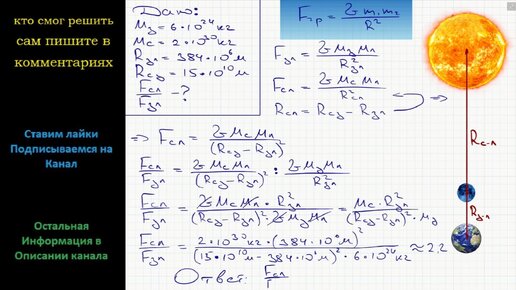 кто смог решить
сам пишите в
комментариях
Ставим лайки
Подписываемся на
Канал
Остальная
Информация в
Описании канала
Дано:
Mз = 6·10²⁴ кг
Mс = 2·10³⁰ кг
Rзл = 384·10⁶ м
Rсз = 15·10¹⁰ м
Fсл/Fзл - ?
Fгр = G m₁ m₂ / R²
Fзл = G Mз Mл / R²зл
Fсл = G Mс Mл / R²сл
Rсл = Rсз - Rзл
=> Fсл = G Mс Mл / (Rсз - Rзл)²
Fсл/Fзл = G Mс Mл / (Rсз - Rзл)² : G Mз Mл / R²зл
Fсл/Fзл = G Mс Mл · R²зл / (Rсз - Rзл)² · G Mз Mл = Mс · R²зл / (Rсз - Rзл)² · Mз
Fсл/Fзл = 2·10³⁰ кг · (384·10⁶ м)² / (15·10¹⁰ м - 384·10⁶ м)² · 6·10²⁴ кг ≈ 2,2
Ответ: Fсл
Rс-л
Rз-л